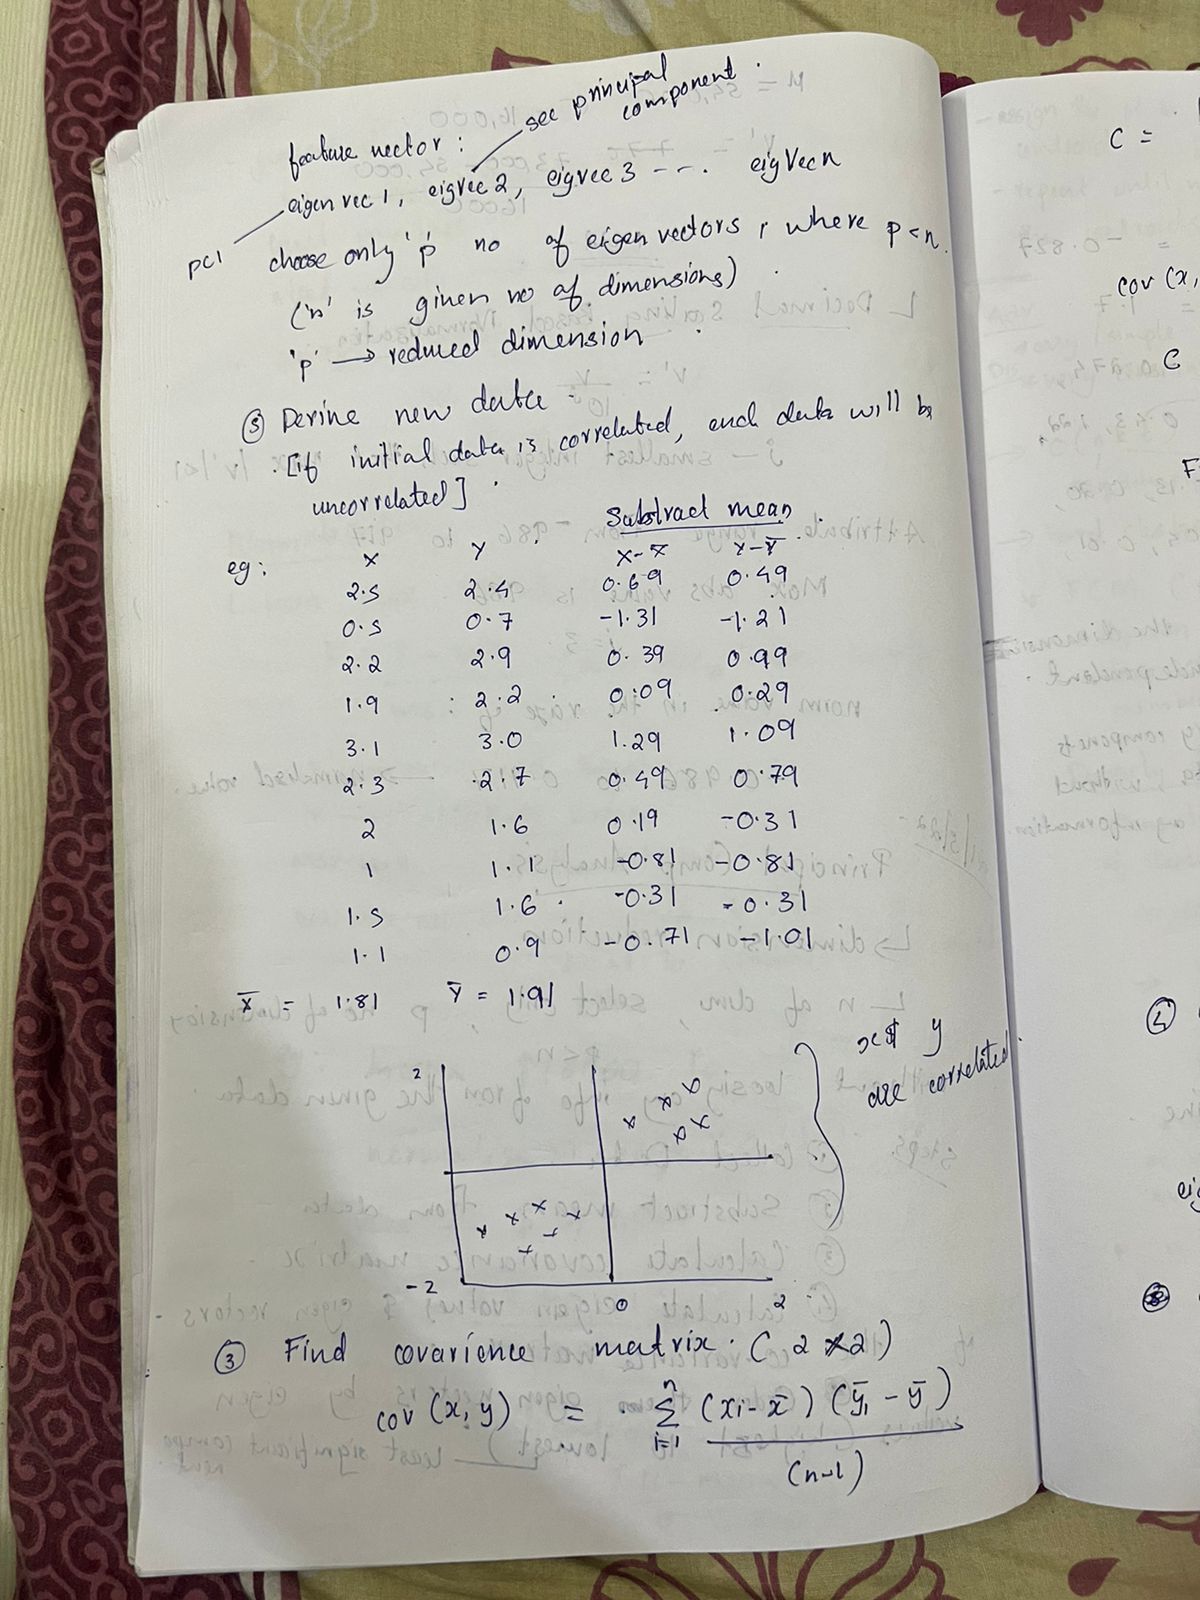 see principal
component .
feature vector :
eigen vec 1, eigvec 2, eigvec 3 --- . eigVec n
pc1 choose only 'p' no of eigen vectors, where p < n.
('n' is given no of dimensions) .
'p' → reduced dimension
⑤ Derive new data -
. [if initial data is correlated, end data will be
uncorrelated] .
Subtract mean .
eg : x y x-x̄ y-ȳ
2.5 2.4 0.69 0.49
0.5 0.7 -1.31 -1.21
2.2 2.9 0.39 0.99
1.9 : 2.2 0.09 0.29
3.1 3.0 1.29 1.09
2.3 2.7 0.49 0.79
2 1.6 0.19 -0.31
1 1.1 -0.81 -0.81
1.5 1.6 -0.31 -0.31
1.1 0.9 -0.71 -1.01
x̄ = 1.81 ȳ = 1.91
x & y
are correlated.
2
-2
0 2
③ Find covarience matrix . ( 2 x 2 )
cov (x, y) = n Σ i=1 (xi - x̄ ) (ȳi - ȳ )
(n-1)
C =
cov (x,
C
F
④
eig